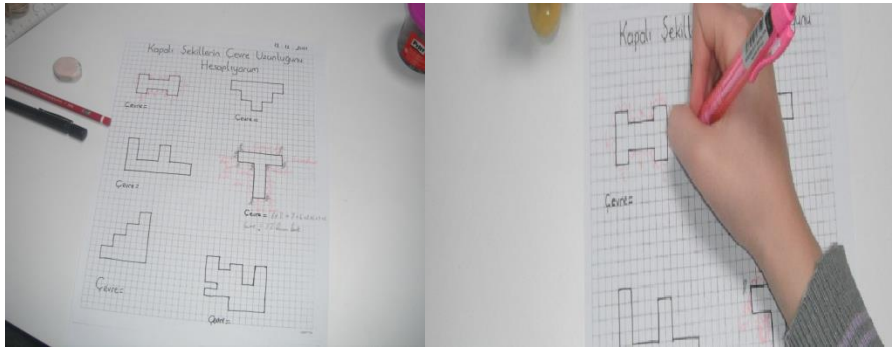 Kapalı Şekillerin Çevre Uzunluğunu
Hesaplıyorum
Çevre=
Çevre=
Çevre=
Çevre=
Çevre=
Çevre=
Kapalı Şekill
Çevre=